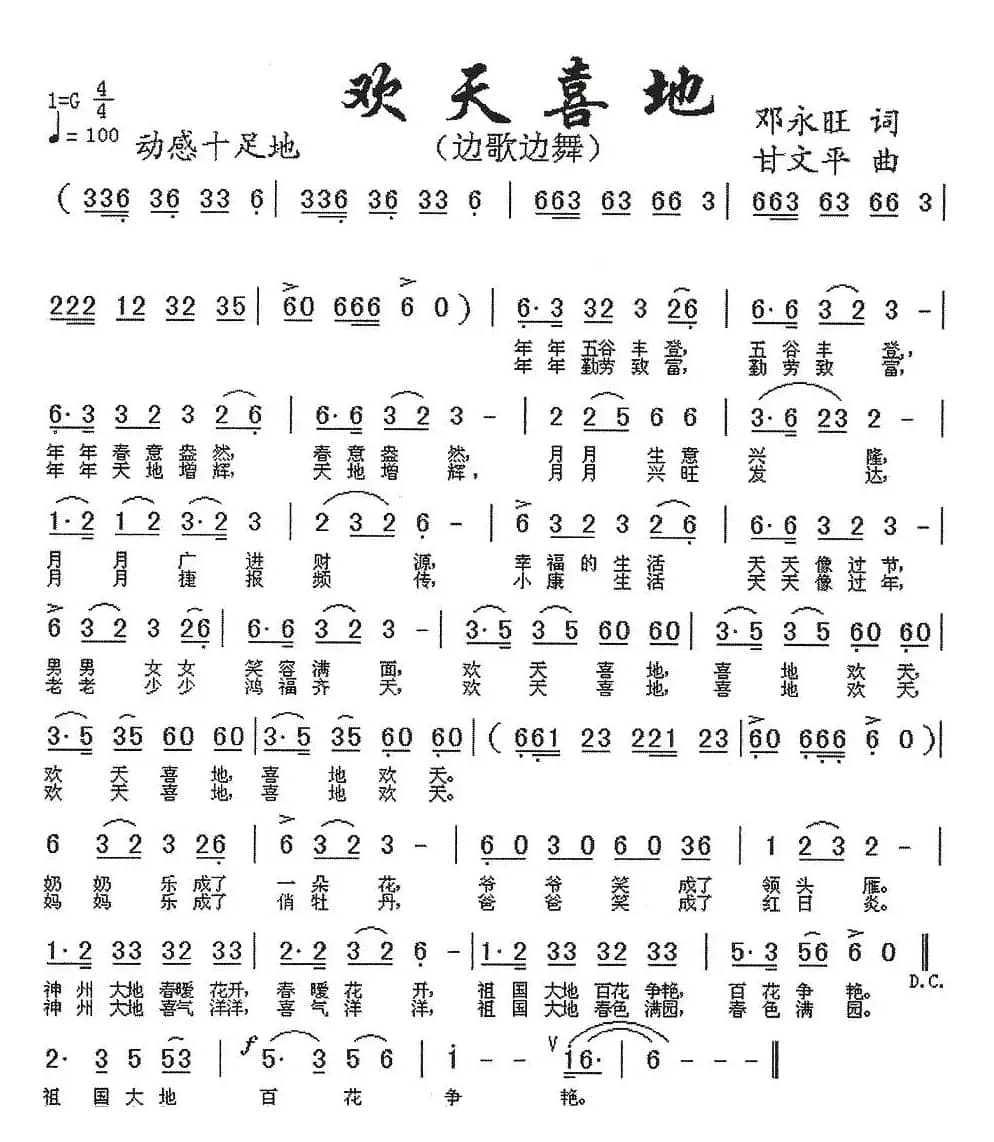 欢天喜地
1=G 4/4
♩= 100
动感十足地
（边歌边舞）
邓永旺 词
甘文平 曲
( 336 36 33 6 | 336 36 33 6 | 663 63 66 3 | 663 63 66 3 |
222 12 32 35 | 60 666 6 0 ) | 6· 3 32 3 26 | 6· 6 3 2 3 - |
年 年 五谷 丰 登, 五 谷 丰 登,,
年 年 勤劳 致 富, 勤 劳 致 富,
6· 3 3 2 3 2 6 | 6· 6 3 2 3 - | 2 2 5 6 6 | 3· 6 23 2 - |
年 年 春 意 盎 然, 春 意 盎 然, 月 月 生 意 兴 隆,
年 年 天 地 增 辉, 天 地 增 辉, 月 月 兴 旺 发 达,
1· 2 1 2 3· 2 3 | 2 3 2 6 - | 6 3 2 3 2 6 | 6· 6 3 2 3 - |
月 月 广 进 财 源, 幸 福 的 生 活 天 天 像 过 节,
月 月 捷 报 频 传, 小 康 生 活 天 天 像 过 年,
6 3 2 3 26 | 6· 6 3 2 3 - | 3· 5 3 5 60 60 | 3· 5 3 5 60 60 |
男 男 女 女 笑 容 满 面, 欢 天 喜 地, 喜 地 欢 天,
老 老 少 少 鸿 福 齐 天, 欢 天 喜 地, 喜 地 欢 天,
3· 5 35 60 60 | 3· 5 35 60 60 | ( 661 23 221 23 | 60 666 6 0 ) |
欢 天 喜 地, 喜 地 欢 天。
欢 天 喜 地, 喜 地 欢 天。
6 3 2 3 26 | 6 3 2 3 - | 6 0 3 0 6 0 36 | 1 2 3 2 - |
奶 奶 乐 成了 一 朵 花, 爷 爷 笑 成了 领 头 雁。
妈 妈 乐 成了 俏 牡 丹, 爸 爸 笑 成了 红 日 炎。
1· 2 33 32 33 | 2· 2 3 2 6 - | 1· 2 33 32 33 | 5· 3 56 6 0 ‖
D.C.
神 州 大地 春暖 花开, 春 暖 花 开, 祖 国 大地 百花 争艳, 百 花 争 艳。
神 州 大地 喜气 洋洋, 喜 气 洋 洋, 祖 国 大地 春色 满园, 春 色 满 园。
2· 3 5 53 | f 5· 3 5 6 | i - - V i6· | 6 - - - ‖
祖 国 大 地 百 花 争 艳。